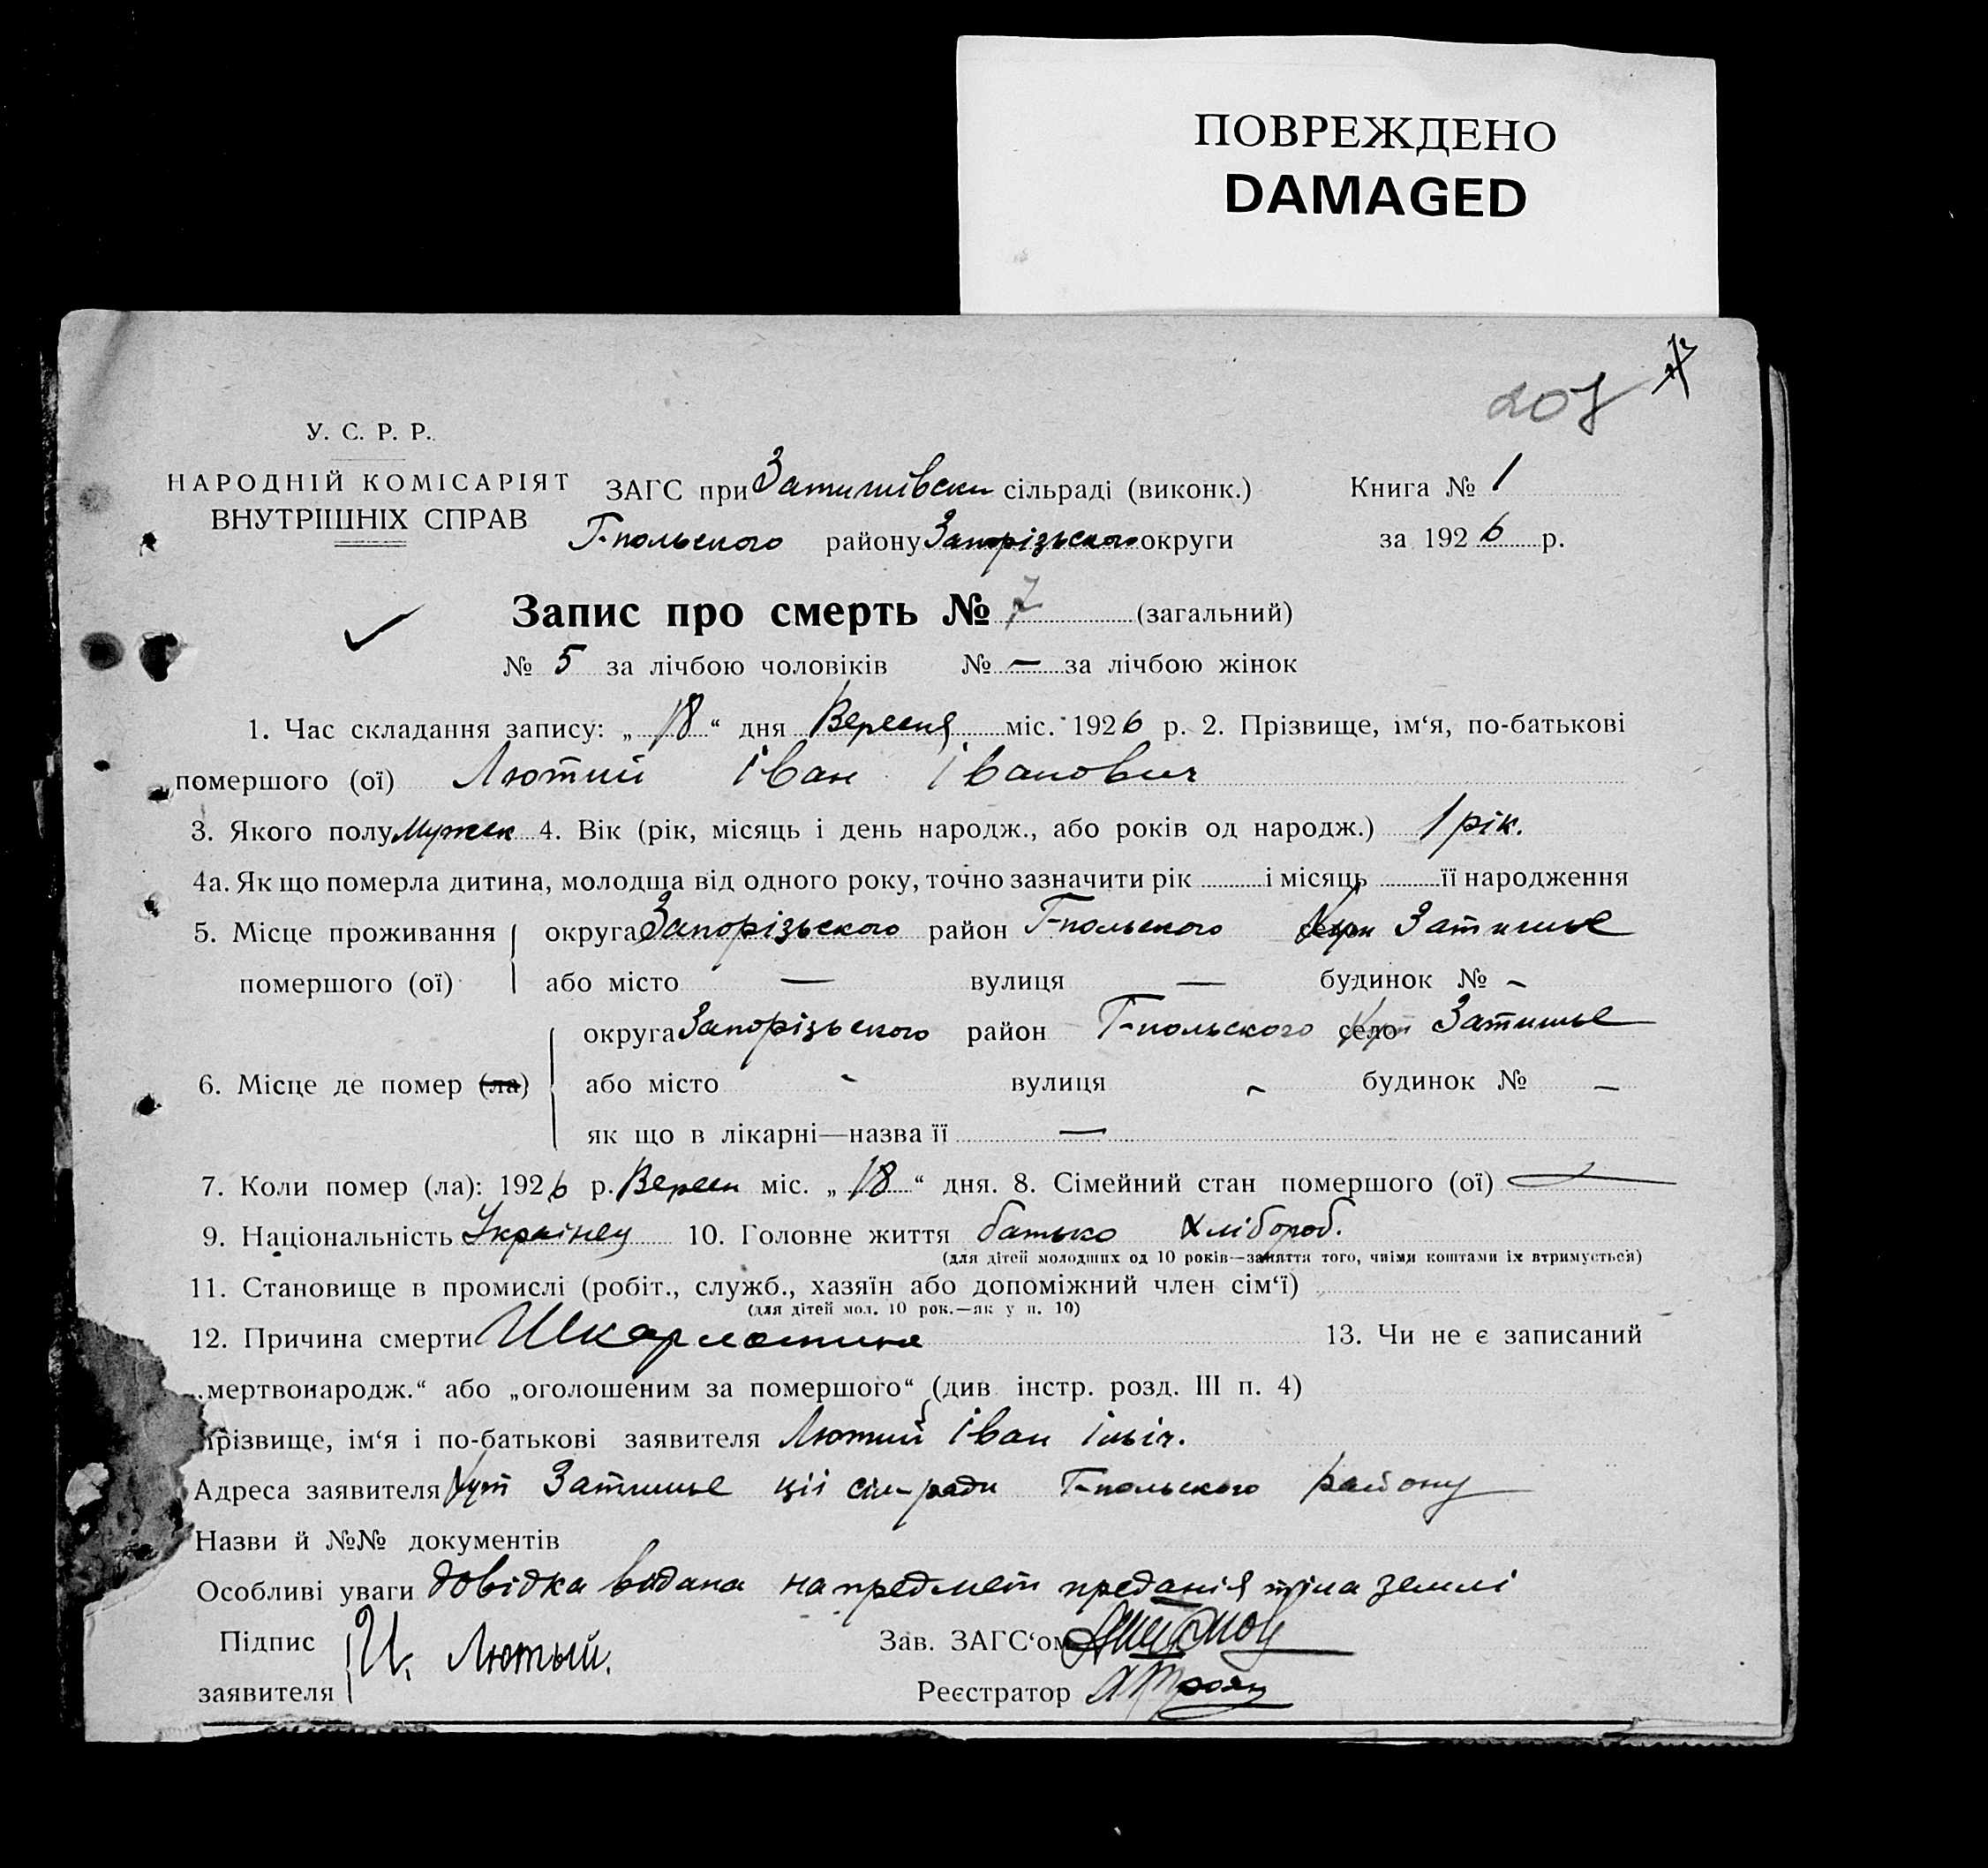 ПОВРЕЖДЕНО
DAMAGED
207
У. С. Р. Р.
НАРОДНІЙ КОМІСАРІЯТ
ВНУТРІШНІХ СПРАВ
ЗАГС при Затишівски сільраді (виконк.) Книга № 1
Г-польского району Запорізького округи за 1926 р.
Запис про смерть № 7 (загальний)
№ 5 за лічбою чоловіків № — за лічбою жінок
1. Час складання запису: „18“ дня Вересня міс. 1926 р. 2. Прізвище, ім‘я, по-батькові
помершого (ої) Лютий Іван Іванович
3. Якого полу Мужск 4. Вік (рік, місяць і день народж., або років од народж.) 1 рік.
4а. Як що померла дитина, молодша від одного року, точно зазначити рік і місяць її народження
5. Місце проживання помершого (ої) округа Запорізьского район Г-польского Хут Затишье
або місто — вулиця — будинок № –
6. Місце де помер (ла) округа Запорізьского район Г-польского село Затишье
або місто - вулиця - будинок № –
як що в лікарні—назва її —
7. Коли помер (ла): 1926 р. Вересн міс. „18“ дня. 8. Сімейний стан помершого (ої) —
9. Національність Українец 10. Головне життя батько хлібороб.
(для дітей молодших од 10 років—заняття того, чиїми коштами їх втримується)
11. Становище в промислі (робіт., служб., хазяїн або допоміжний член сім‘ї)
(для дітей мол. 10 рок.—як у п. 10)
12. Причина смерти Шкарлатина 13. Чи не є записаний
„мертвонародж.“ або „оголошеним за помершого“ (див інстр. розд. III п. 4)
Прізвище, ім‘я і по-батькові заявителя Лютий Іван Ільіч.
Адреса заявителя Хут Затишье ціі сіл-ради Г-польского району
Назви й №№ документів
Особливі уваги довідка видана на предмет преданія тіла землі
Підпис заявителя И. Лютый.
Зав. ЗАГС‘ом
Реєстратор